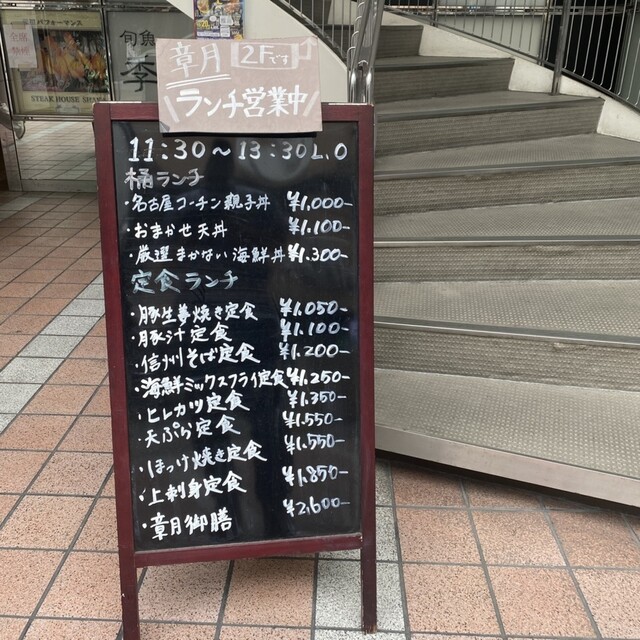 旬魚
季
STEAK HOUSE
章月 2Fです
ランチ営業中
11:30～13:30L.O
桶ランチ
・名古屋コーチン親子丼 ¥1,000-
・おまかせ天丼 ¥1.100-
・厳選まかない海鮮丼 ¥1.300-
定食ランチ
・豚生姜焼き定食 ¥1.050-
・豚汁定食 ¥1.100-
・信州そば定食 ¥1.200-
・海鮮ミックスフライ定食 ¥1.250-
・ヒレカツ定食 ¥1.350-
・天ぷら定食 ¥1.550-
・ほっけ焼き定食 ¥1.550-
・上刺身定食 ¥1.850-
・章月御膳 ¥2,600-